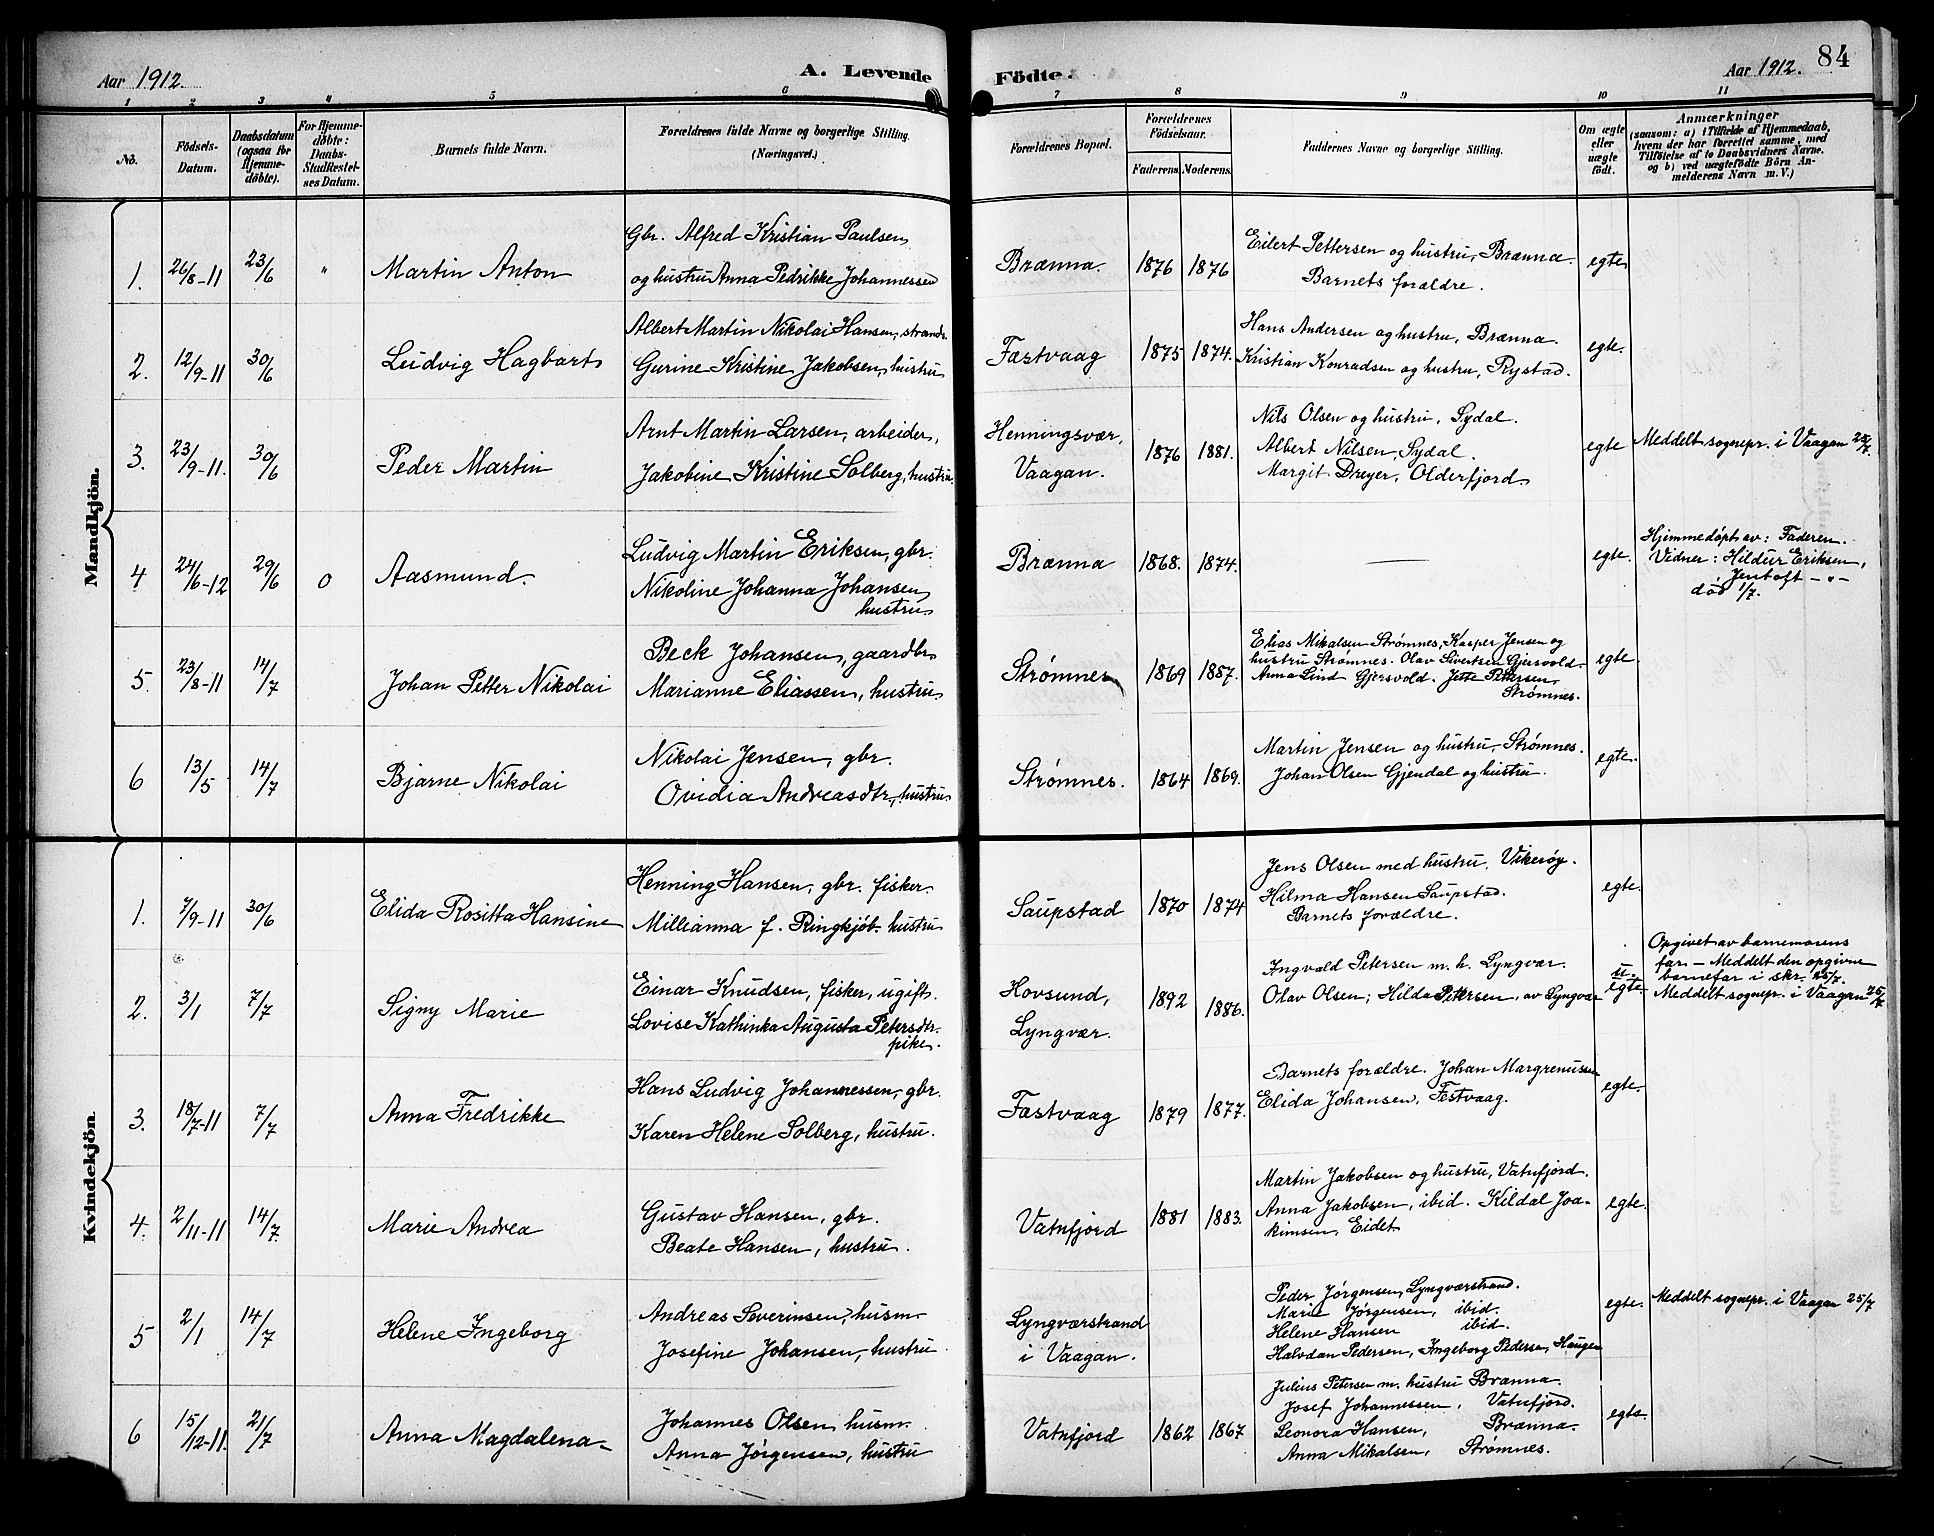 Aar 1912.
A. Levende
1 2 3 4 5 6
No.
Födsels-
Datum.
Daabsdatum
(ogsaa for
Hjemme-
döbte).
For Hjemme-
döbte:
Daabs-
Stadfæstel-
ses Datum.
Barnets fulde Navn.
Forældrenes fulde Navne og borgerlige Stilling.
(Næringsvei.)
Mandkjön.
1. 26/8-11 23/6 " Martin Anton
Gbr. Alfred Kristian Paulsen
og hustru Anna Pedrikke Johannessen
2. 12/9-11 30/6 Ludvig Hagbart
Albert Martin Nikolai Hansen, strands.
Gurine Kristine Jakobsen, hustru
3. 23/9-11. 30/6 Peder Martin
Arnt Martin Larsen, arbeider,
Jakobine Kristine Solberg, hustru.
4 24/6-12 29/6 0 Aasmund.
Ludvig Martin Eriksen, gbr.
Nikoline Johanna Johansen
hustru
5. 23/8-11 14/7 Johan Petter Nikolai
Beck Johansen, gaardbr.
Marianne Eliassen, hustru
6 13/5 14/7 Bjarne Nikolai
Nikolai Jensen, gbr.
Ovidia Andreasdtr, hustru
Kvindekjön.
1. 7/9-11 30/6 Elida Rositta Hansine
Henning Hansen, gbr. fisker.
Millianna f. Ringkjöb. hustru
2. 3/1 7/7 Signy Marie
Einar Knudsen, fisker, ugift.
Lovise Kathinka Augusta Petersdtr.
pike.
3. 18/7-11 7/7 Anna Fredrikke
Hans Ludvig Johannessen, gbr.
Karen Helene Solberg, hustru.
4. 2/11-11 14/7. Marie Andrea
Gustav Hansen, gbr.
Beate Hansen, hustru.
5 2/1 14/7 Helene Ingeborg
Andreas Severinsen, husm.
Josefine Johansen, hustru
6 15/12-11. 21/7 Anna Magdalena
Johannes Olsen, husm.
Anna Jørgensen, hustru
Födte.
Aar 1912.
84
7 8 9 10 11
Forældrenes Bopæl.
Forældrenes
Födselsaar.
Faderens. Moderens.
Faddernes Navne og borgerlige Stilling.
Om ægte
eller
uægte
födt.
Anmærkninger
(saasom: a) i Tilfælde af Hjemmedaab,
hvem der har forrettet samme, med
Tilföielse af to Daabsvidners Navne.
og b) ved uægtefödte Börn An-
melderens Navn m. V.)
Brænna. 1876 1876
Eilert Pettersen og hustru, Brænna.
Barnets forældre.
egte
Fæstvaag 1875 1874.
Hans Andersen og hustru, Brænna.
Kristian Konradsen og hustru, Rystad.
egte.
Henningsvær,
Vaagan. 1876 1881.
Nils Olsen og hustru, Sydal.
Albert Nilsen, Sydal.
Margit Dreyer, Olderfjord
egte
Meddelt sognepr. i Vaagan 25/7.
Brænna 1868. 1874.
egte.
Hjemmedøpt av: Faderen.
Vidner: Hildur Eriksen,
Jentoft -"-
død 1/7.
Strømnes 1869 1887.
Elias Mikalsen Strømnes, Kasper Jensen og
hustru Strømnes. Olav Sivertsen Gjersvold.
Anna Lind Gjersvold. Jette Petersen,
Strømnes.
egte.
Strømnes. 1864 1869.
Martin Jensen og hustru, Strømnes.
Johan Olsen Gjendal og hustru.
egte.
Saupstad 1870 1874
Jens Olsen med hustru, Vikerøy.
Hilma Hansen Saupstad.
Barnets forældre.
egte.
Hovsund,
Lyngvær. 1892 1886.
Ingvald Petersen m. h. Lyngvær.
Olav Olsen; Hilda Petersen, av Lyngvær
u.
egte.
Opgivet av barnemorens
far - Meddelt den opgivne
barnefar i skr. 25/7.
Meddelt sognepr. i Vaagan 25/7
Fæstvaag 1879 1877.
Barnets forældre. Johan Margrenussen
Elida Johansen, Festvaag.
egte.
Vatnfjord 1881 1883.
Martin Jakobsen og hustru, Vatnfjord.
Anna Jakobsen, ibid. Kildal Joa-
kimsen, Eidet
egte.
Lyngværstrand
i Vaagan.
Peder Jørgensen, Lyngværstrand.
Marie Jørgensen, ibid.
Helene Hansen ibid.
Halvdan Pedersen, Ingeborg Pedersen, Haugen
egte.
Meddelt sognepr. i Vaagan 25/7
Vatnfjord 1862 1867
Julius Petersen m. hustru Brænna.
Josef Johannessen, Vatnfjord.
Leonora Hansen, Brænna.
Anna Mikalsen, Strømnes.
egte.